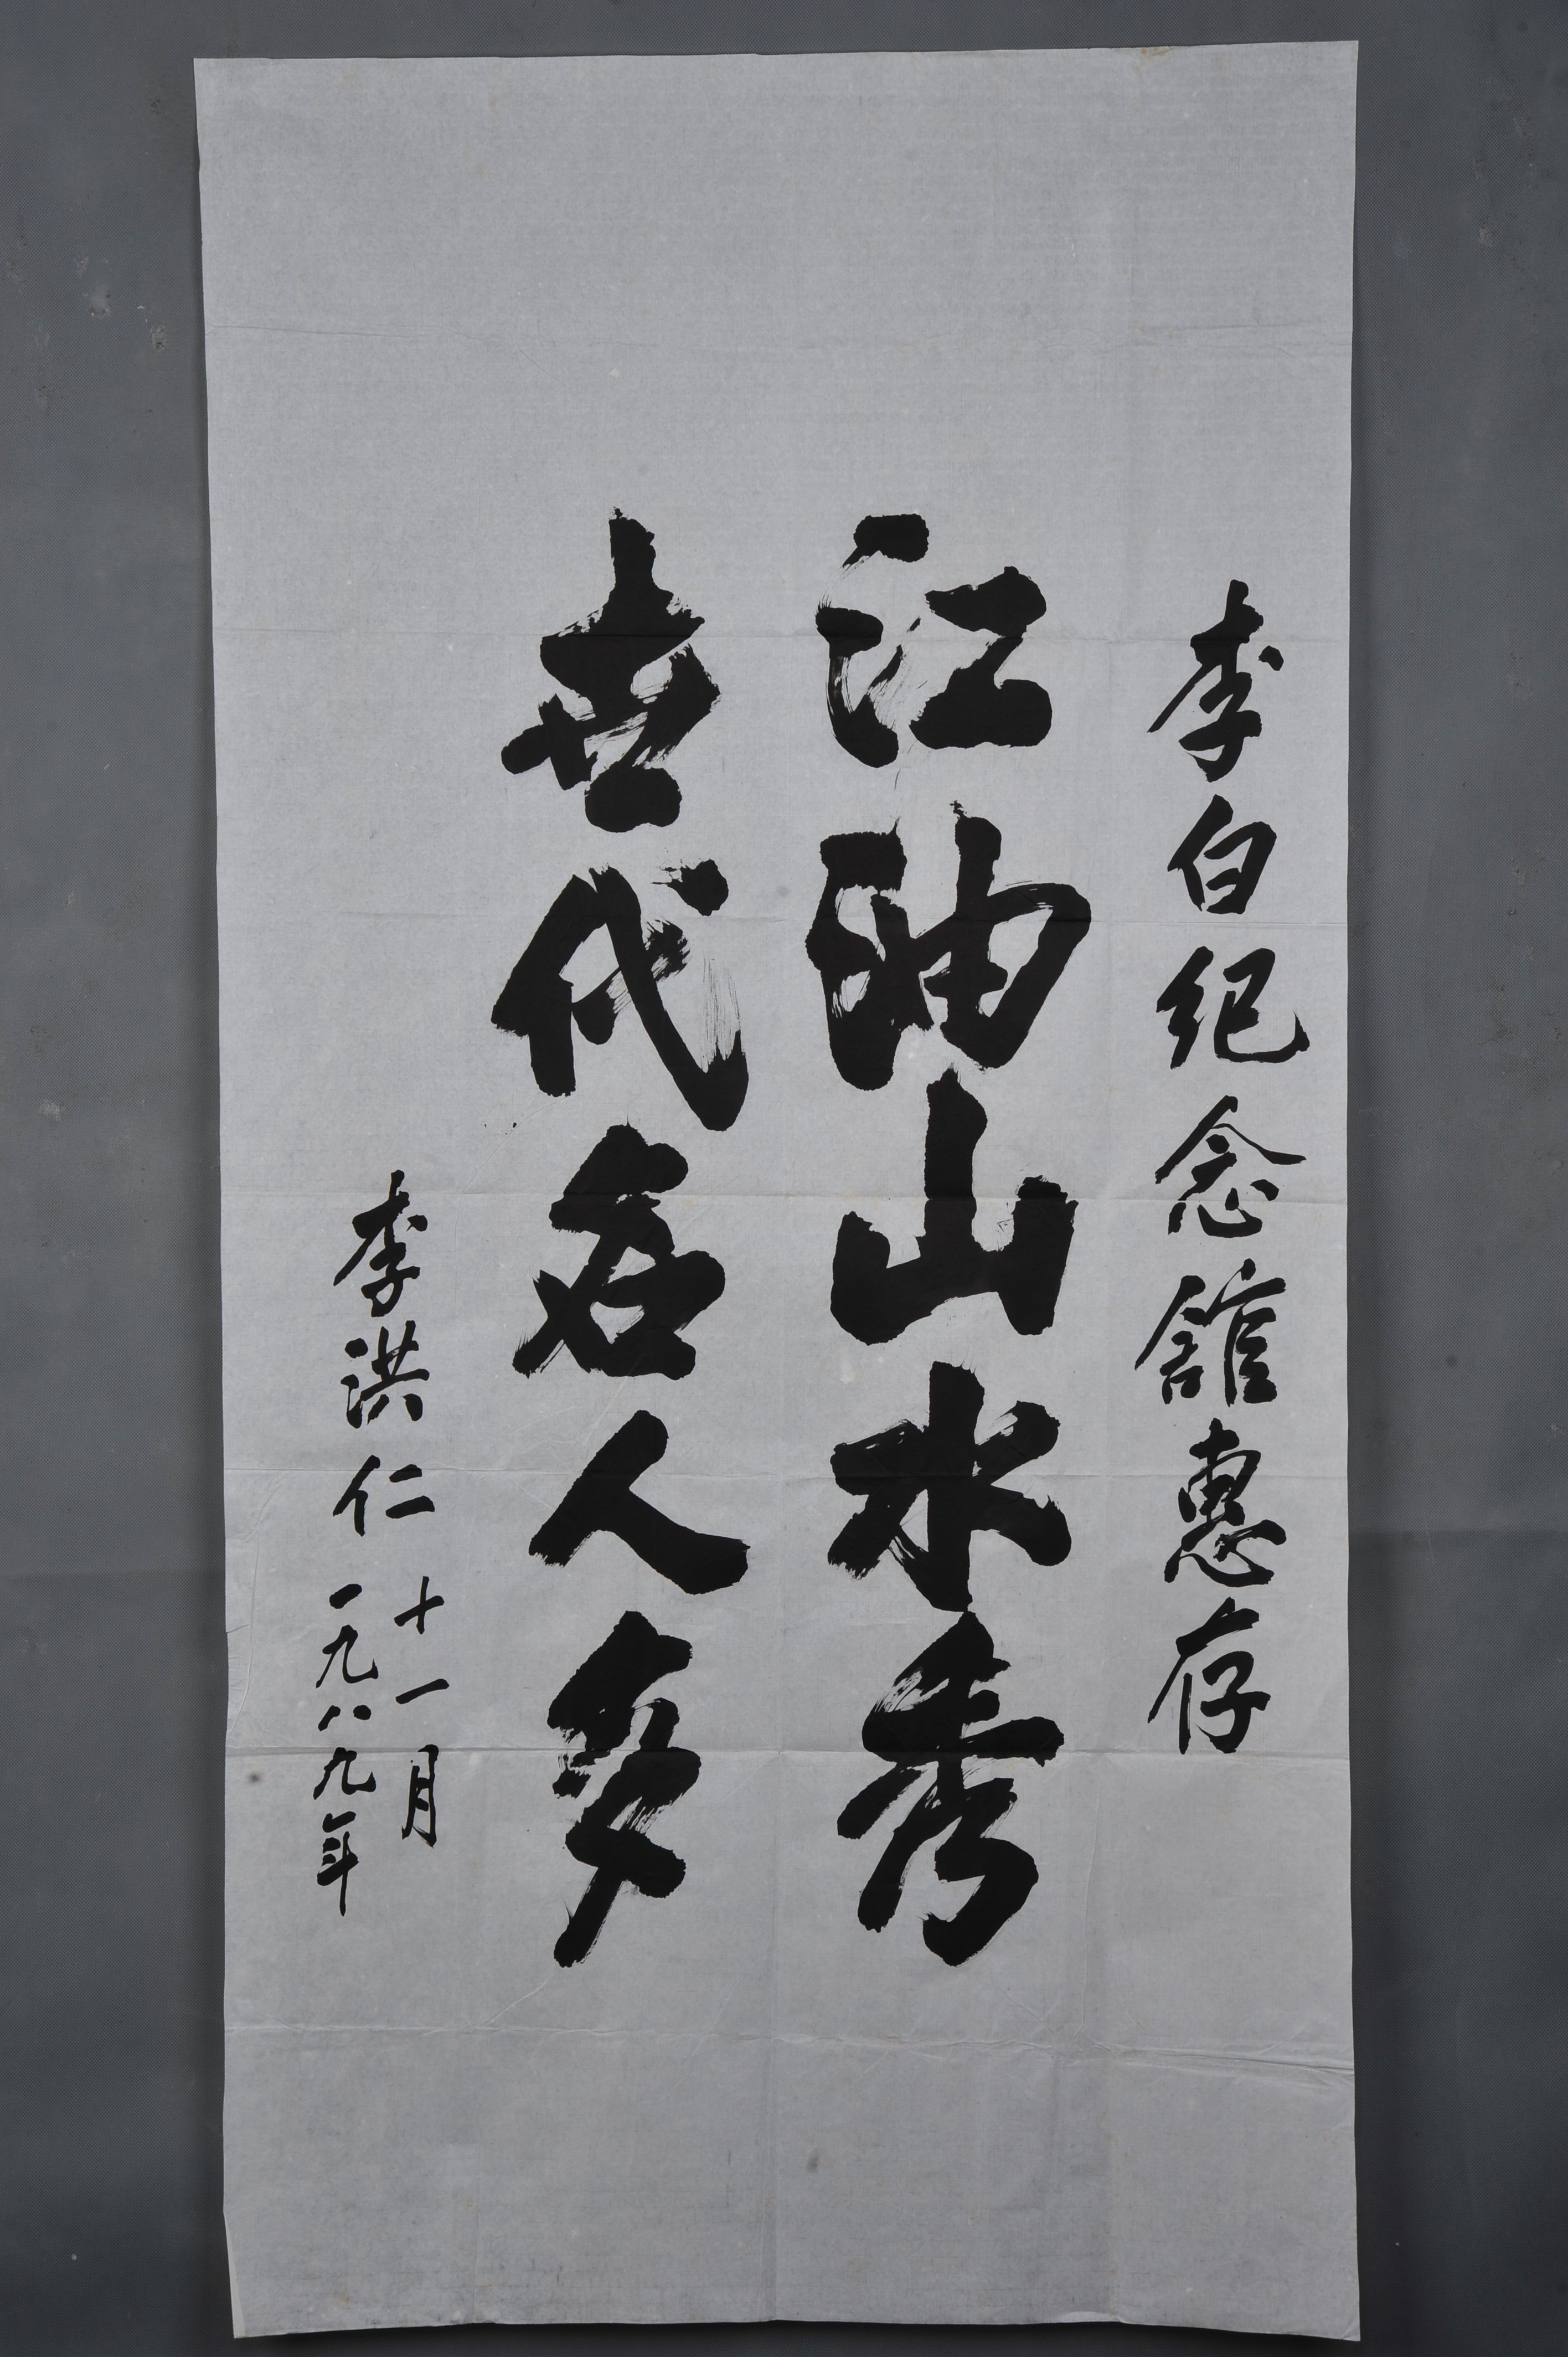 李白纪念館惠存
江油山水秀
世代名人多
李洪仁
十一月
一九八九年